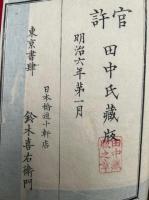 官許
田中氏藏版
明治六年第一月
日本橋通十軒店
東京書肆
鈴木喜右衛門